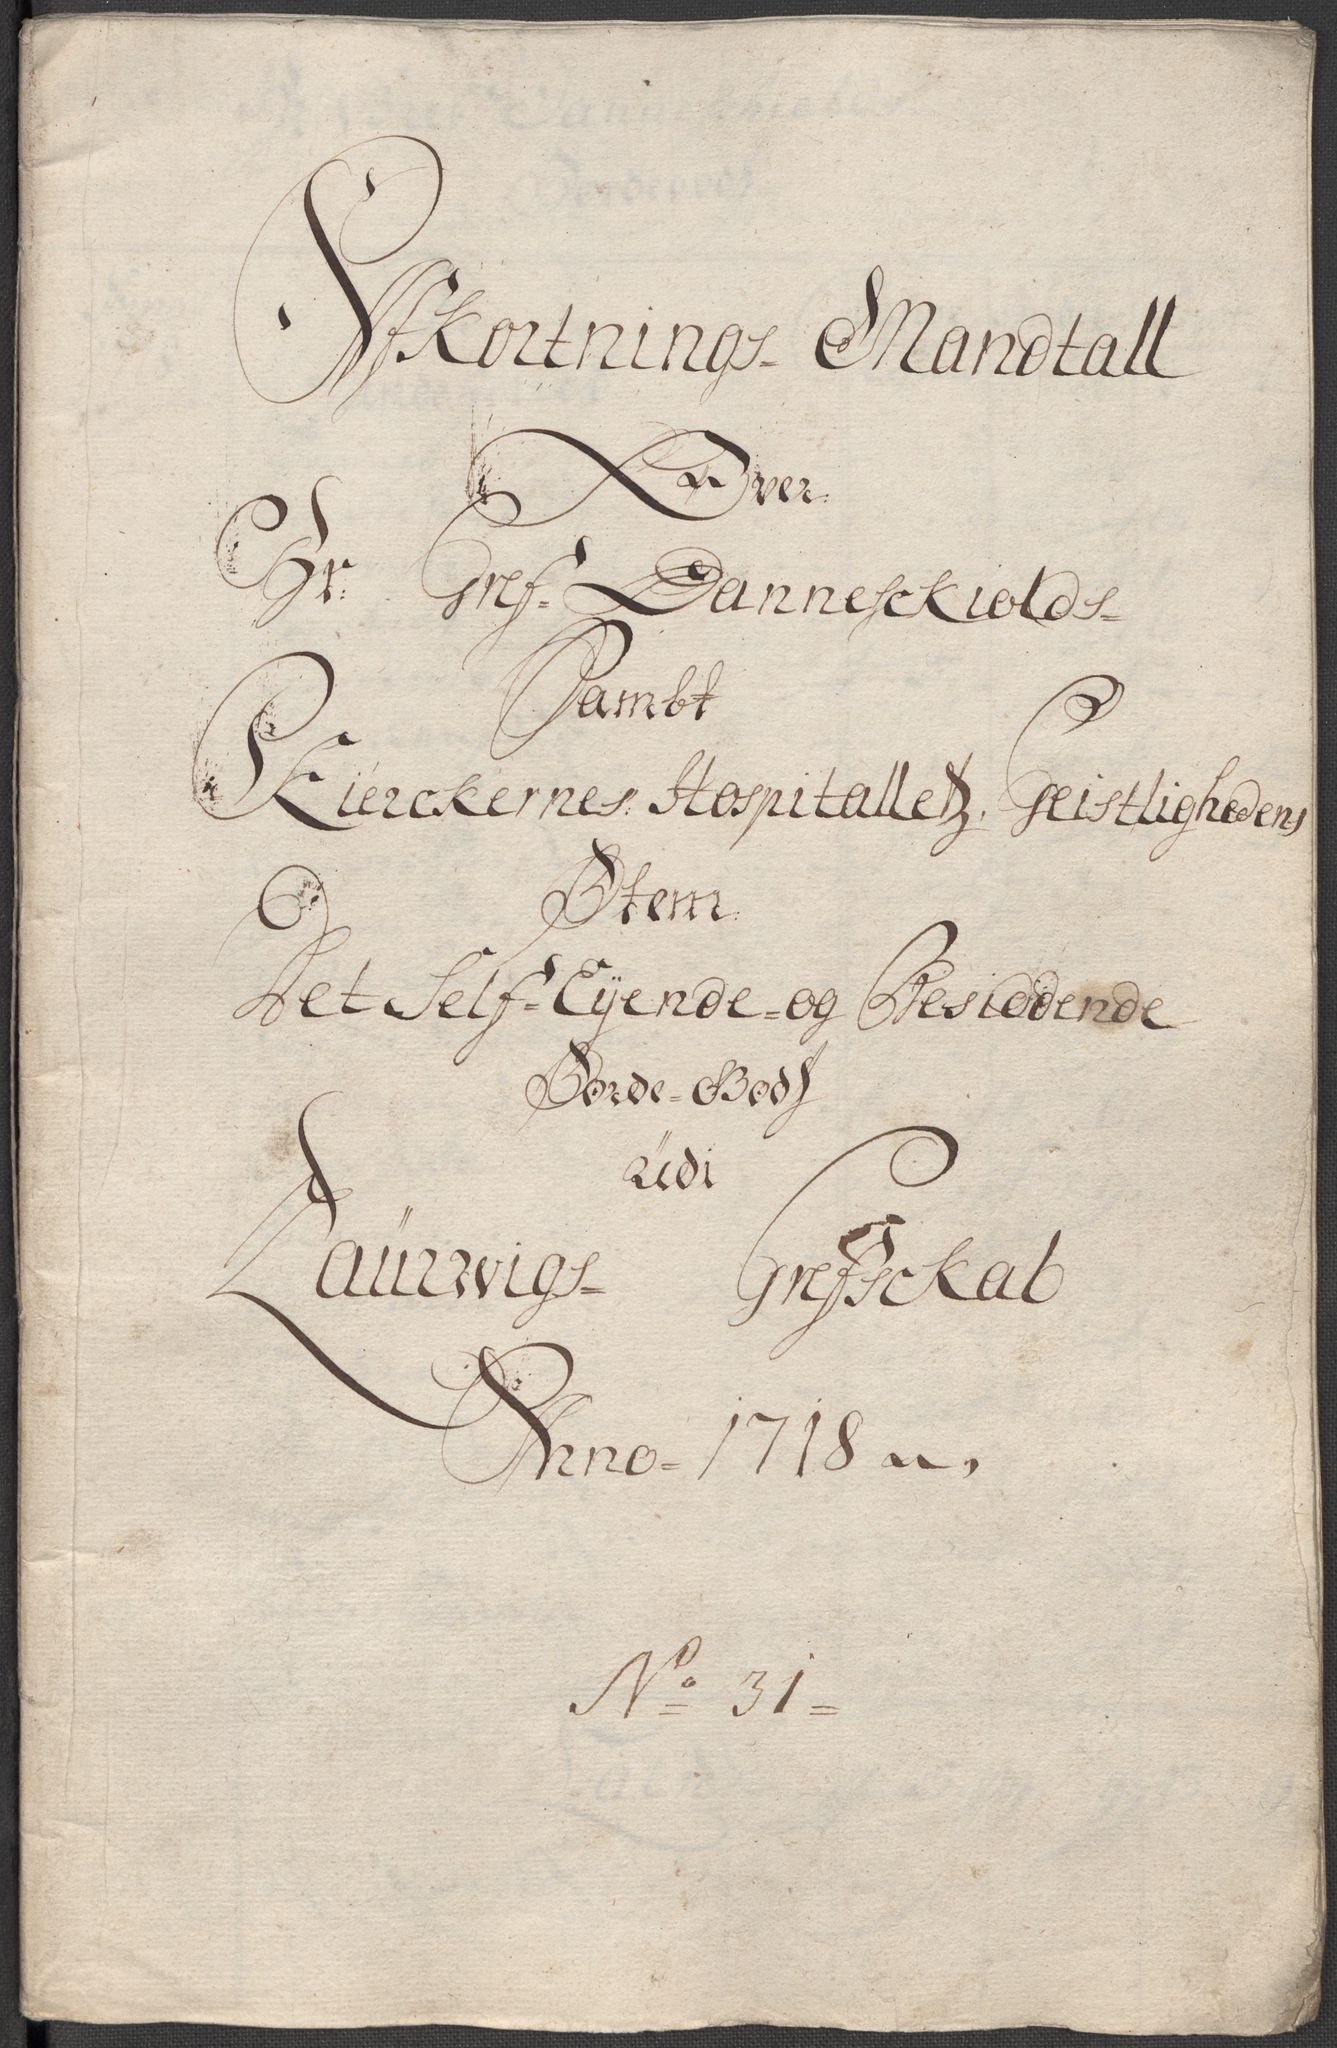 Afkortnings- Mandtall
Over
Hr: Gref- Danneschiolds-
Sambt
Kierckernes, Hospitalletz, Geistlighedens
Item
Det Self-Eyende-og Besiddende
Jorde-Godß
udi
Laürwigs- Grefsckab
Anno- 1718
No 31=